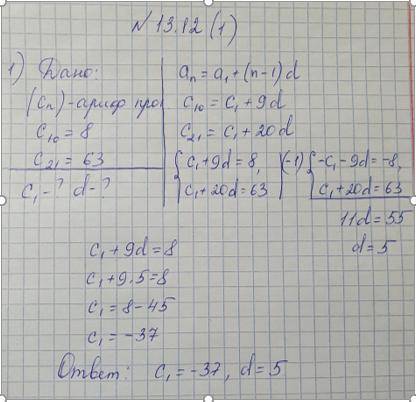 № 13.12 (1)
1) Дано:
(Cn) - ариф про
C10 = 8
C21 = 63
C1 - ? d - ?
an = a1 + (n-1)d
C10 = C1 + 9d
C21 = C1 + 20d
{ C1 + 9d = 8, |(-1) { -C1 - 9d = -8,
C1 + 20d = 63 C1 + 20d = 63
11d = 55
d = 5
C1 + 9d = 8
C1 + 9·5 = 8
C1 = 8 - 45
C1 = -37
Ответ: C1 = -37, d = 5